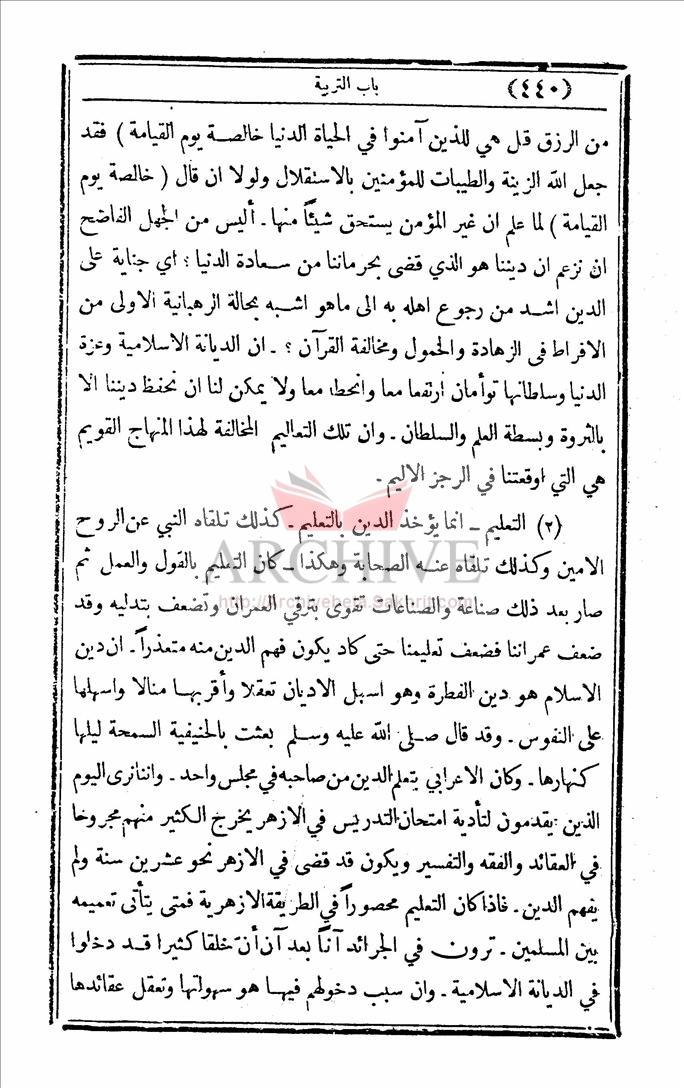 (٤٤٠) باب التربية
من الرزق قل هي للذين آمنوا في الحياة الدنيا خالصة يوم القيامة ) فقد
جعل الله الزينة والطيبات للمؤمنين بالاستقلال ولولا ان قال ( خالصة يوم
القيامة ) لما علم ان غير المؤمن يستحق شيئاً منها . أليس من الجهل الفاضح
ان نزعم ان ديننا هو الذي قضى بحرماننا من سعادة الدنيا ؛ اي جناية على
الدين اشد من رجوع اهله به الى ماهو اشبه بحالة الرهبانية الاولى من
الافراط فى الزهادة والخمول ومخالفة القرآن ؟ . ان الديانة الاسلامية وعزة
الدنيا وسلطانها توأمان ارتفعا معا وانحطا معا ولا يمكن لنا ان نحفظ ديننا الا
بالثروة وبسطة العلم والسلطان . وان تلك التعاليم المخالفة لهذا المنهاج القويم
هي التي اوقعتنا في الرجز الاليم .
(٢) التعليم – انما يؤخذ الدين بالتعليم . كذلك تلقاه النبي عن الروح
الامين وكذلك تلقاه عنه الصحابة وهكذا – كان التعليم بالقول والعمل ثم
صار بعد ذلك صناعة والصناعات تقوى بترقي العمران وتضعف بتدليه وقد
ضعف عمراننا فضعف تعليمنا حتى كاد يكون فهم الدين منه متعذراً . ان دين
الاسلام هو دين الفطرة وهو اسهل الاديان تعقلا وأقربها منالا واسهلها
على النفوس . وقد قال صلى الله عليه وسلم بعثت بالحنيفية السمحة ليلها
كنهارها . وكان الاعرابي يتعلم الدين من صاحبه في مجلس واحد . واننا نرى اليوم
الذين يقدمون لتأدية امتحان التدريس في الازهر يخرج الكثير منهم مجروحا
في العقائد والفقه والتفسير ويكون قد قضى في الازهر نحو عشرين سنة ولم
يفهم الدين . فاذا كان التعليم محصوراً في الطريقة الازهرية فمتى يتأتى تعميمه
بين المسلمين . ترون في الجرائد آناً بعد آن أن خلقا كثيرا قد دخلوا
في الديانة الاسلامية . وان سبب دخولهم فيها هو سهولتها وتعقل عقائدها
ARCHIVE